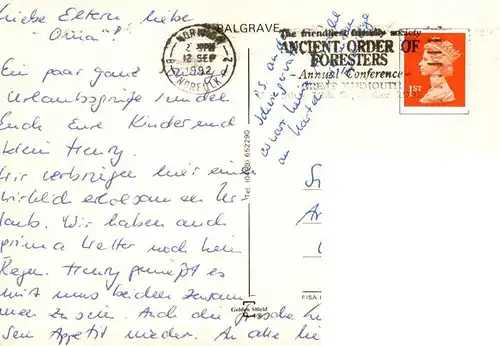 Liebe Eltern, liebe
"Oma"!
Ein paar ganz
Urlaubsgrüße senden
Euch Eure Kinder und
klein Henry.
Wir verbringen hier einen
wirklich erholsamen Ur-
laub. Wir haben auch
prima Wetter noch kein
Regen. Henry genießt es
mit uns beiden zusam-
men zu sein. Auch die
Appetit wieder. An alle
PALGRAVE
NORWICH
12 SEP
1992
NORFOLK
The friendliest friendly society
ANCIENT ORDER OF
FORESTERS
Annual Conference
GREAT YARMOUTH
1ST
Tel (04868) 652290
FISA
Golden Shield